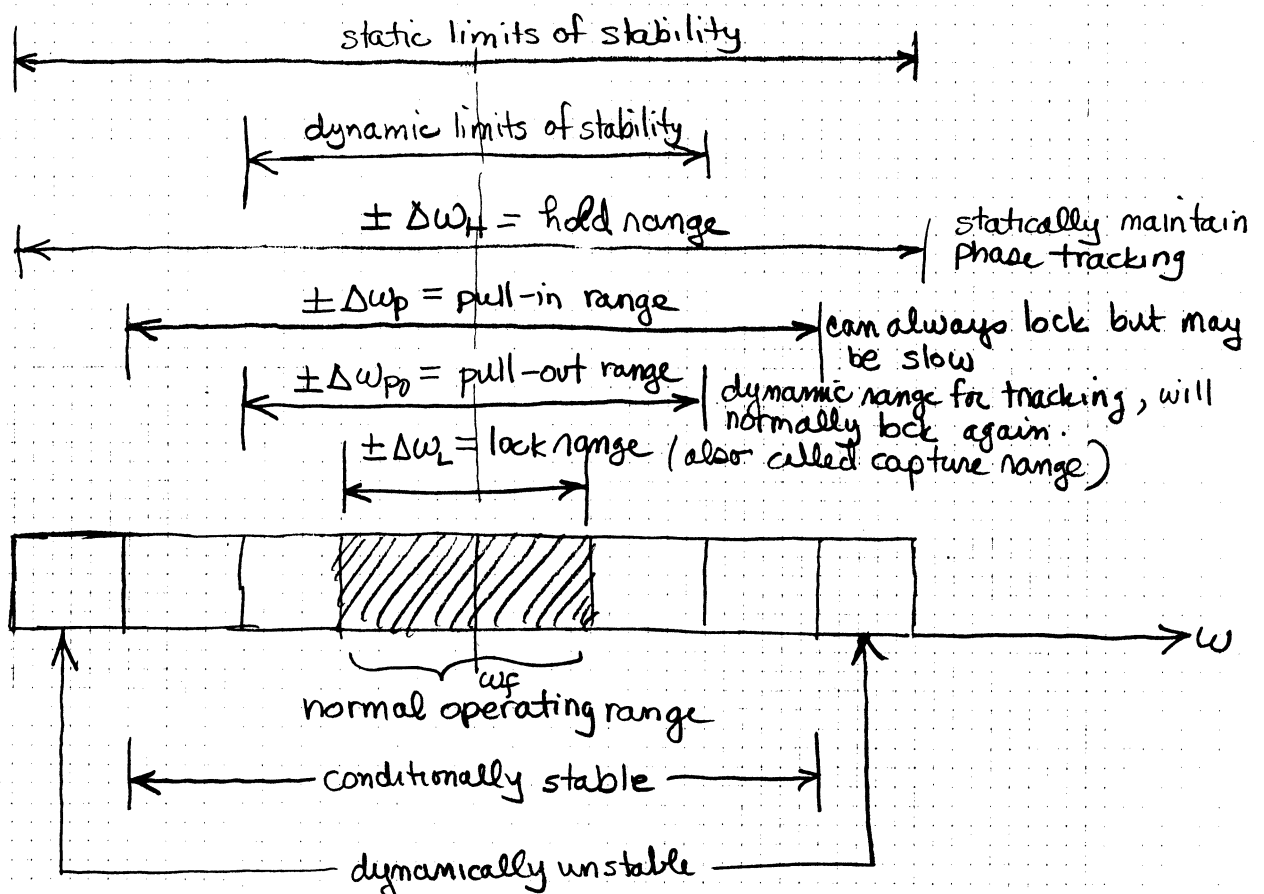 static limits of stability
dynamic limits of stability
± Δω_H = hold range
statically maintain
phase tracking
± Δω_P = pull-in range
can always lock but may
be slow
± Δω_PO = pull-out range
dynamic range for tracking, will
normally lock again.
± Δω_L = lock range (also called capture range)
ω
ω_f
normal operating range
conditionally stable
dynamically unstable